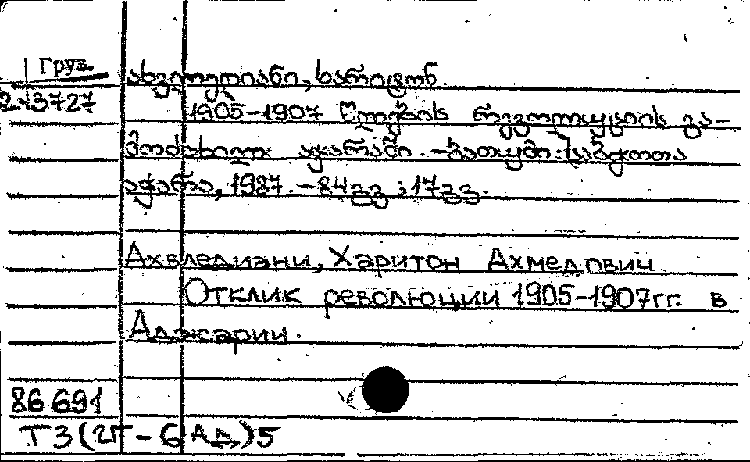 Груз.
ახვლედიანი, ხარიტონ
2-13727
1905-1907 წლების რევოლუციის გა-
მოძახილი აჭარაში. - ბათუმი: საბჭოთა
აჭარა, 1987. - 84გვ; 17გვ.
Ахвледиани, Харитон Ахмедович
Отклик революции 1905-1907гг. в
Аджарии.
86 691
Т3(2Г-6Ад)5